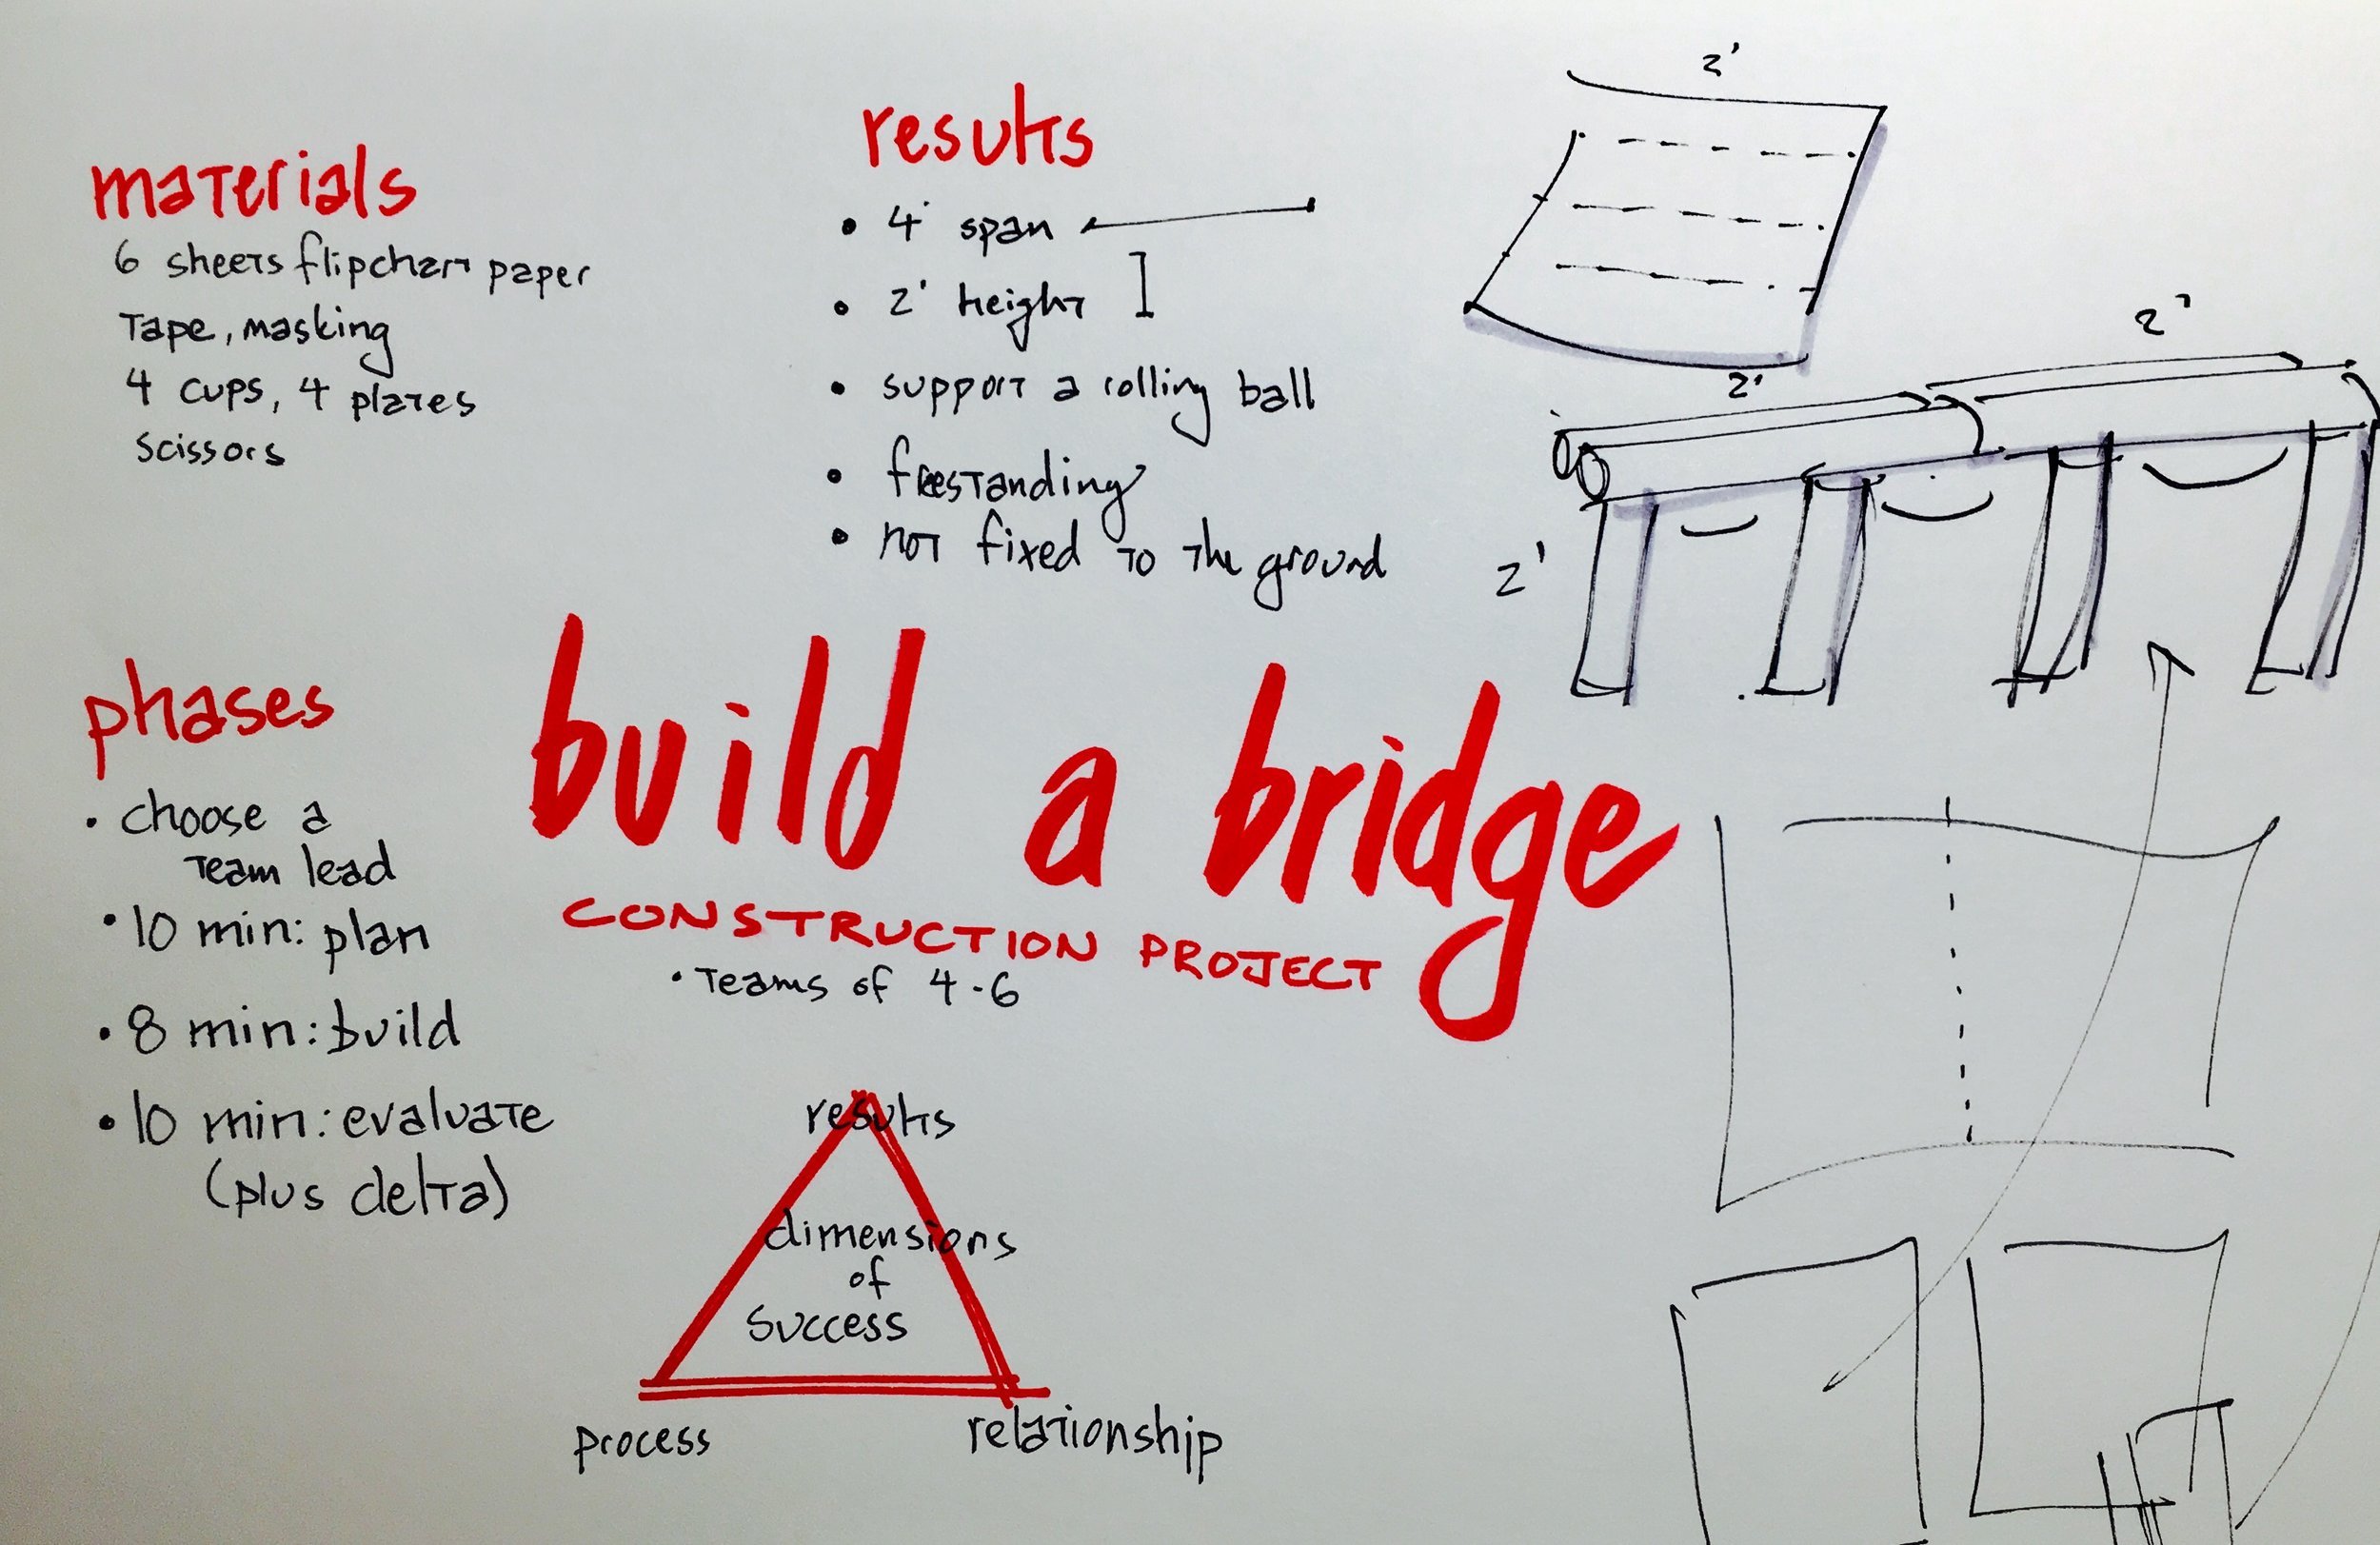 materials
6 sheets flipchart paper
Tape, masking
4 cups, 4 plates
Scissors
results
• 4' span
• 2' height
• support a rolling ball
• freestanding
• not fixed to the ground
2'
2'
2'
2'
phases
• choose a
team lead
• 10 min: plan
• 8 min: build
• 10 min: evaluate
(plus delta)
build a bridge
CONSTRUCTION PROJECT
• Teams of 4-6
results
dimensions
of
success
process
relationship